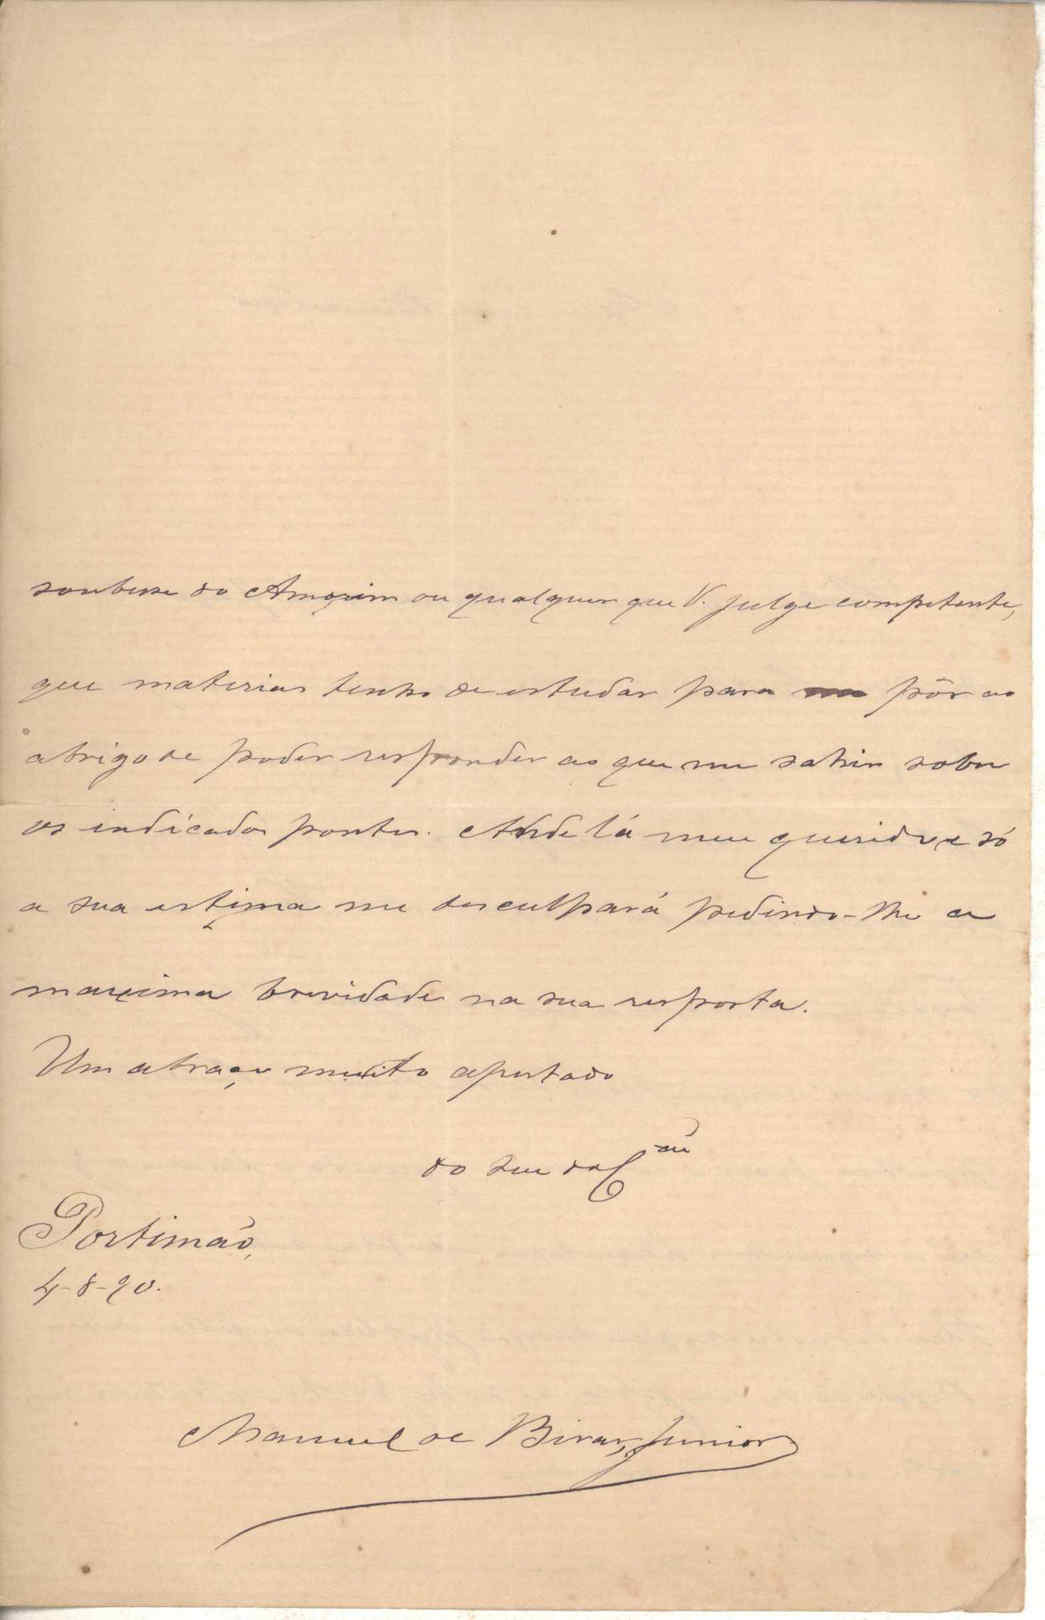 soubesse do Amorim ou qualquer que V. julge competente,
que materias tenho de estudar para pôr ao
abrigo de poder responder ao que me sahir sobre
os indicados pontos. Ande lá meu querido e só
a sua estima me desculpará pedindo-lhe a
maxima brevidade na sua resposta.
Um abraço muito apertado
do seu do C
Portimão,
4-8-90.
Manuel de Bivar, Junior